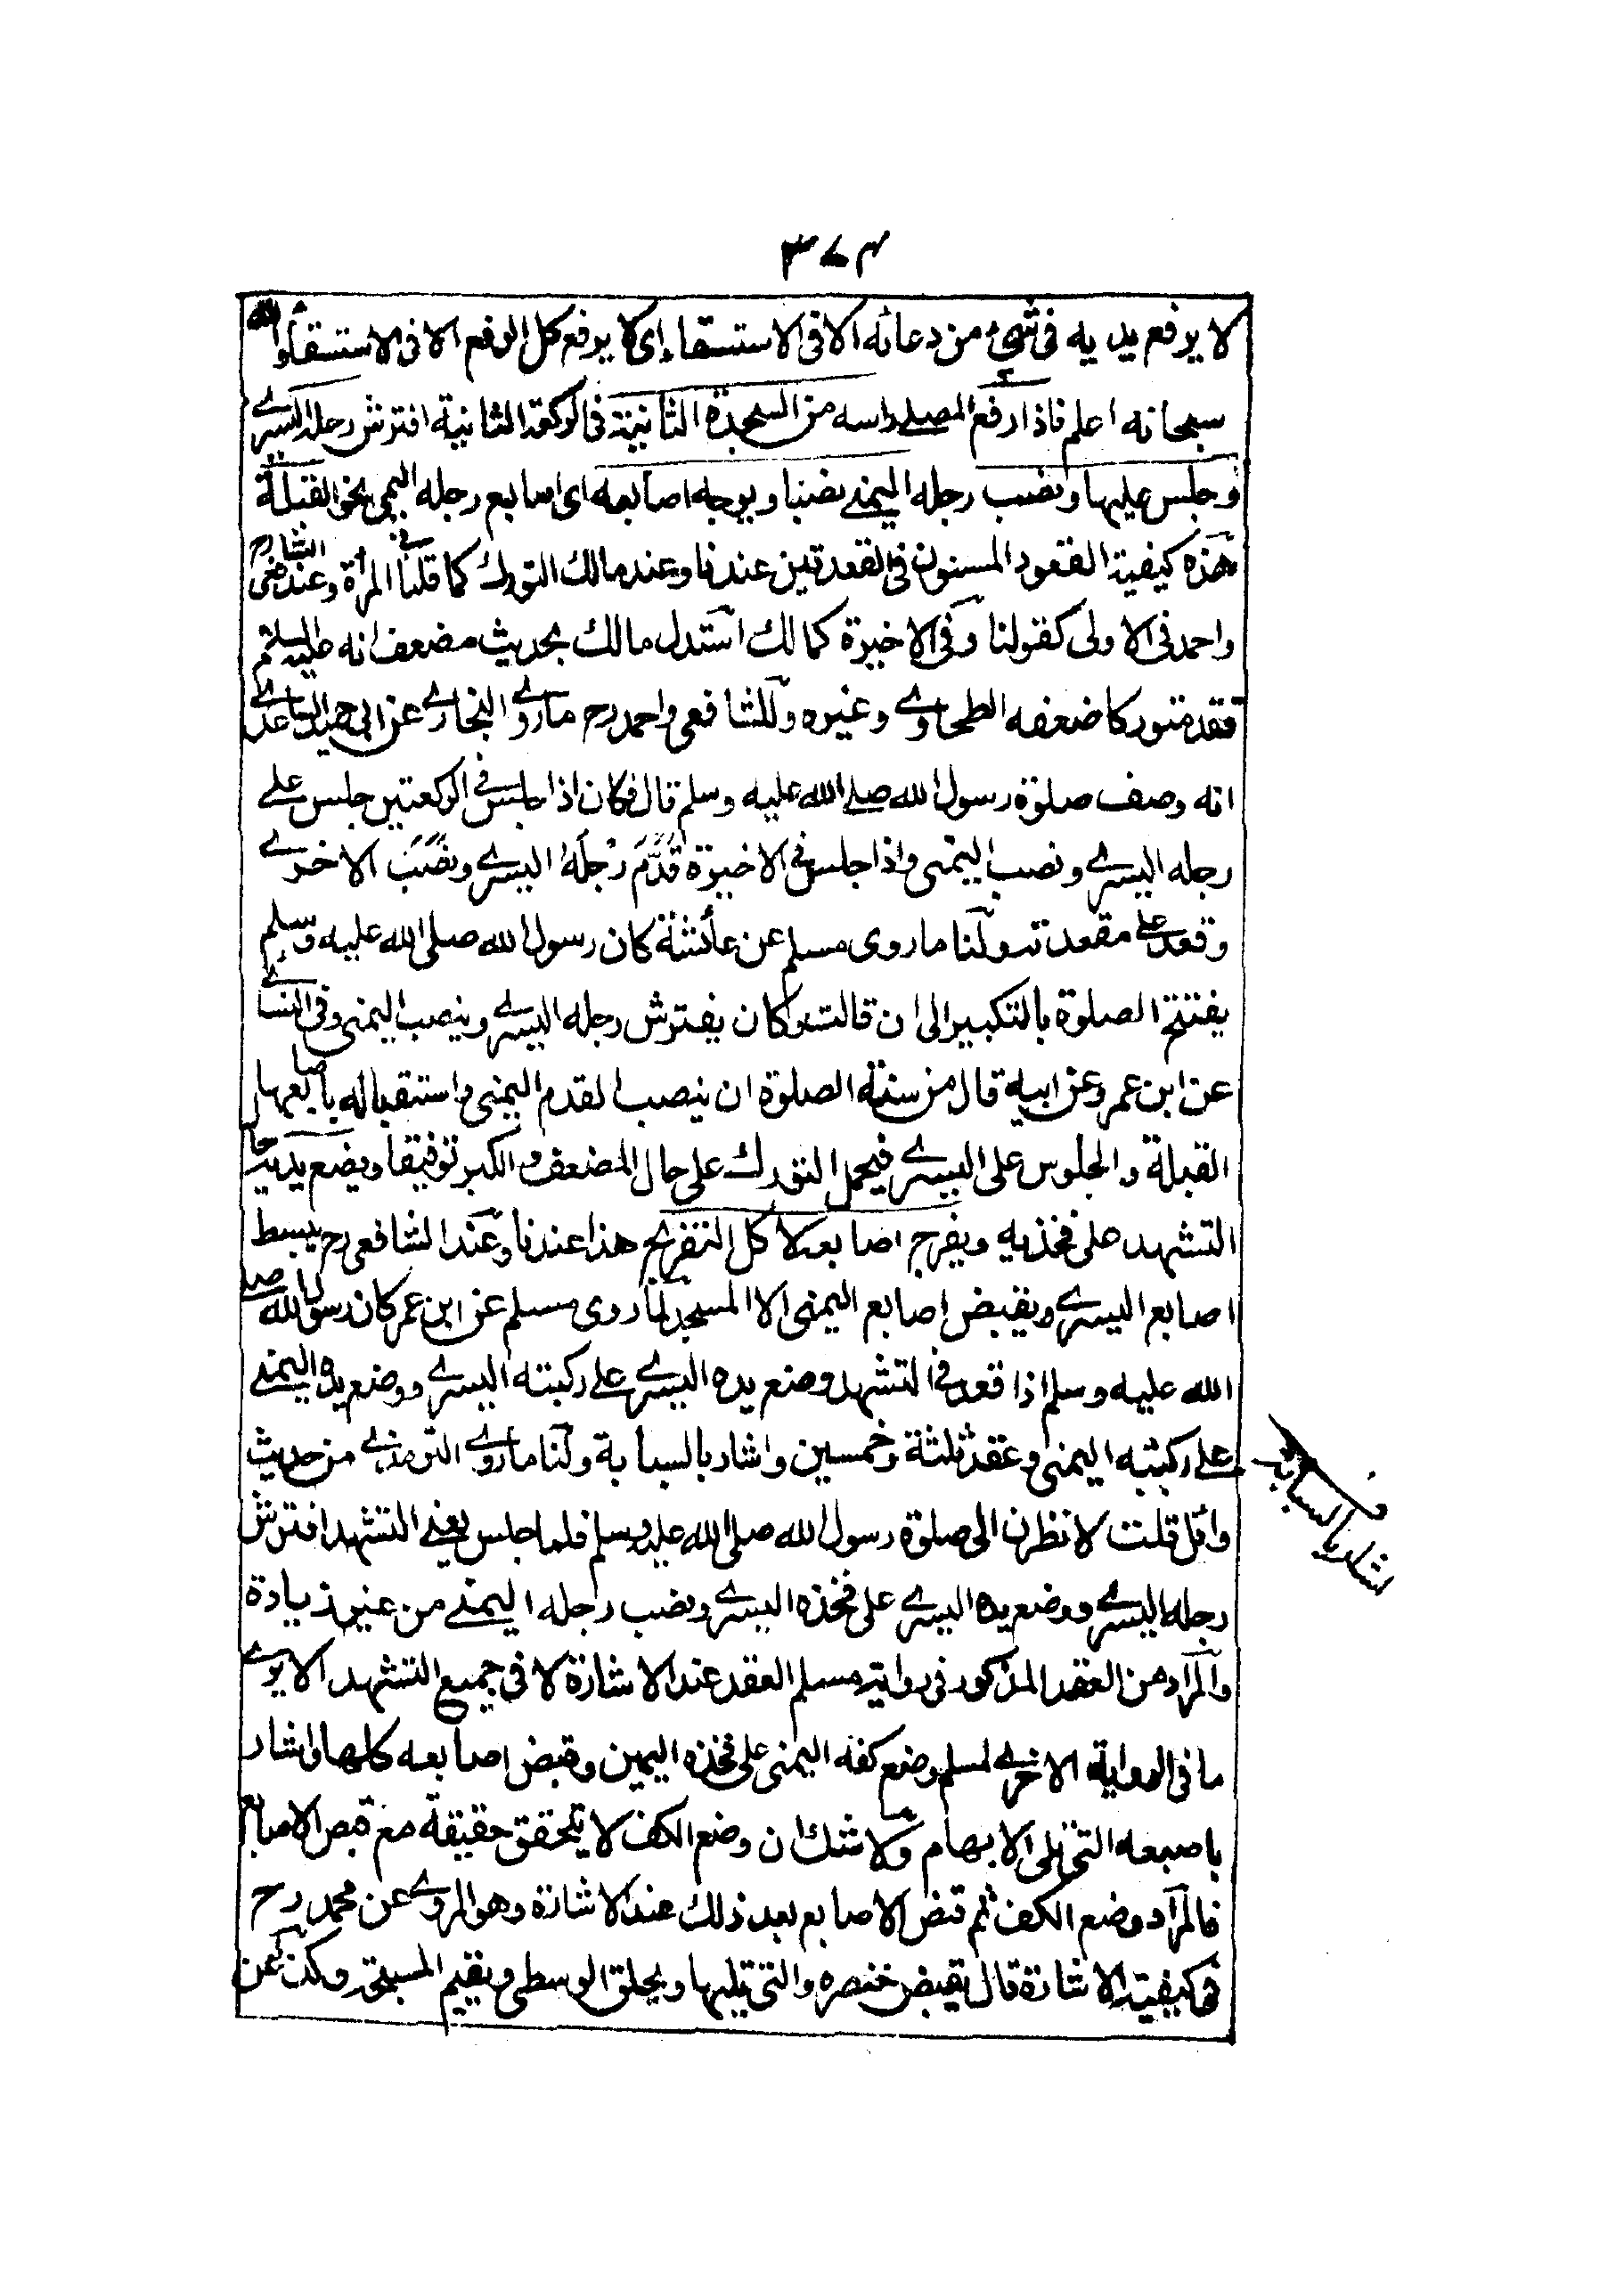 ٣٧٤
لا يرفع يديه فى شئ من دعائه الا فى الاستسقاء اى لا يرفع كل الرفع الا فى الاستسقاء والله
سبحانه اعلم فاذا رفع المصلے راسه من السجدة الثانية فى الركعة الثانية افترش رجله اليسرے
وجلس عليها ونصب رجله اليمنے نصبا ويوجه اصابعه اى اصابع رجله اليمنى نحو القبلة
هذه كيفية القعود المسنون فى القعدتين عندنا وعند مالك التورك كما قلنا فى المرأة وعند الشافعى رح
واحمد فى الاولى كقولنا وفى الاخيرة كمالك استدل مالك بحديث مضعف انه عليه السلام
قعد متوركا ضعفه الطحاوے وغيره وللشافعى واحمد رح ماروے البخارے عن ابى حميد الساعدے
انه وصف صلوة رسول الله صلے الله عليه وسلم قال فكان اذا جلس فى الركعتين جلس علے
رجله اليسرے ونصب اليمنى واذا جلس فى الاخيرة قدّم رجله اليسرے ونصب الاخرے
وقعد علے مقعدته ولنا ما روى مسلم عن عائشة كان رسول الله صلى الله عليه وسلم
يفتتح الصلوة بالتكبير الى ان قالت وكان يفترش رجله اليسرے وينصب اليمنى وفى النسائے
عن ابن عمر وعن ابيه قال من سنة الصلوة ان ينصب القدم اليمنى واستقباله باصابعها
القبلة والجلوس على اليسرے فيحمل التورك على حال الضعف والكبر توفيقا ويضع يديه حال
التشهد على فخذيه ويفرج اصابعه لا كل التفريج هذا عندنا وعند الشافعى رح يبسط
اصابع اليسرے ويقبض اصابع اليمنى الا المسبحة لما روى مسلم عن ابن عمر كان رسول الله صلے
الله عليه وسلم اذا قعد فى التشهد وضع يده اليسرے علے ركبته اليسرے ووضع يده اليمنے
علے ركبته اليمنى وعقد ثلثة وخمسين واشار بالسبابة ولنا ماروے الترمذے من حديث
وائل قلت لانظرن الى صلوة رسول الله صلى الله عليه وسلم فلما جلس يعنے التشهد افترش
رجله اليسرے ووضع يده اليسرے على فخذه اليسرے ونصب رجله اليمنے من غير زيادة
والمراد من العقد المذكور فى رواية مسلم العقد عند الاشارة لا فى جميع التشهد الا يرے
ما فى الرواية الاخرے لمسلم وضع كفه اليمنى على فخذه اليمين وقبض اصابعه كلها واشار
باصبعه التى تلى الابهام ولا شك ان وضع الكف لا يتحقق حقيقة مع قبض الاصابع
فالمراد وضع الكف ثم قبض الاصابع بعد ذلك عند الاشارة وهو المروے عن محمد رح
فى كيفية الاشارة قال يقبض خنصره والتى تليها ويحلق الوسطى ويقيم المسبحة وكذا عن